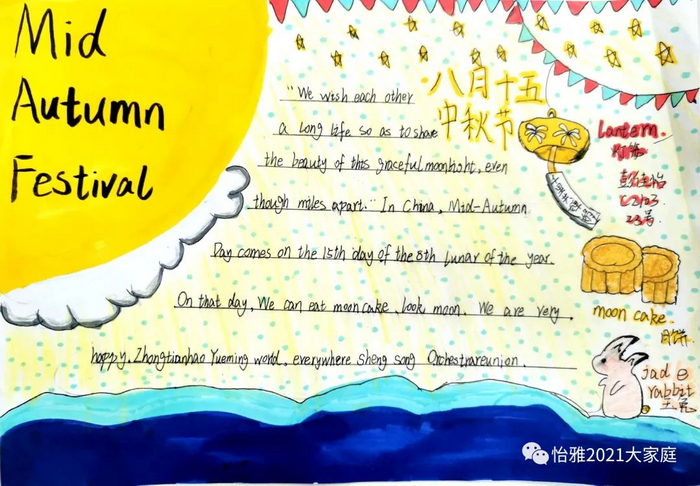 Mid
Autumn
Festival
八月十五
中秋节
"We wish each other
a long life so as to share
the beauty of this graceful moonlight, even
though miles apart." In China, Mid-Autumn
Day comes on the 15th day of the 8th lunar of the year.
On that day, We can eat moon cake, look moon. We are very
happy. Zhongtianhao Yueming world, everywhere sheng song Orchestrareunion.
Lantern.
灯笼
C2123
23号
moon cake
月饼
jade
rabbit
玉兔
怡雅2021大家庭